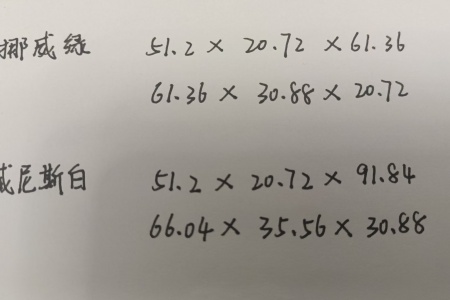 挪威绿 51.2 × 20.72 × 61.36
61.36 × 30.88 × 20.72
威尼斯白 51.2 × 20.72 × 91.84
66.04 × 35.56 × 30.88